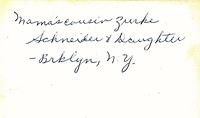 Mama's cousin Zurke
Schneider & Daughter
- Brklyn, N.Y.